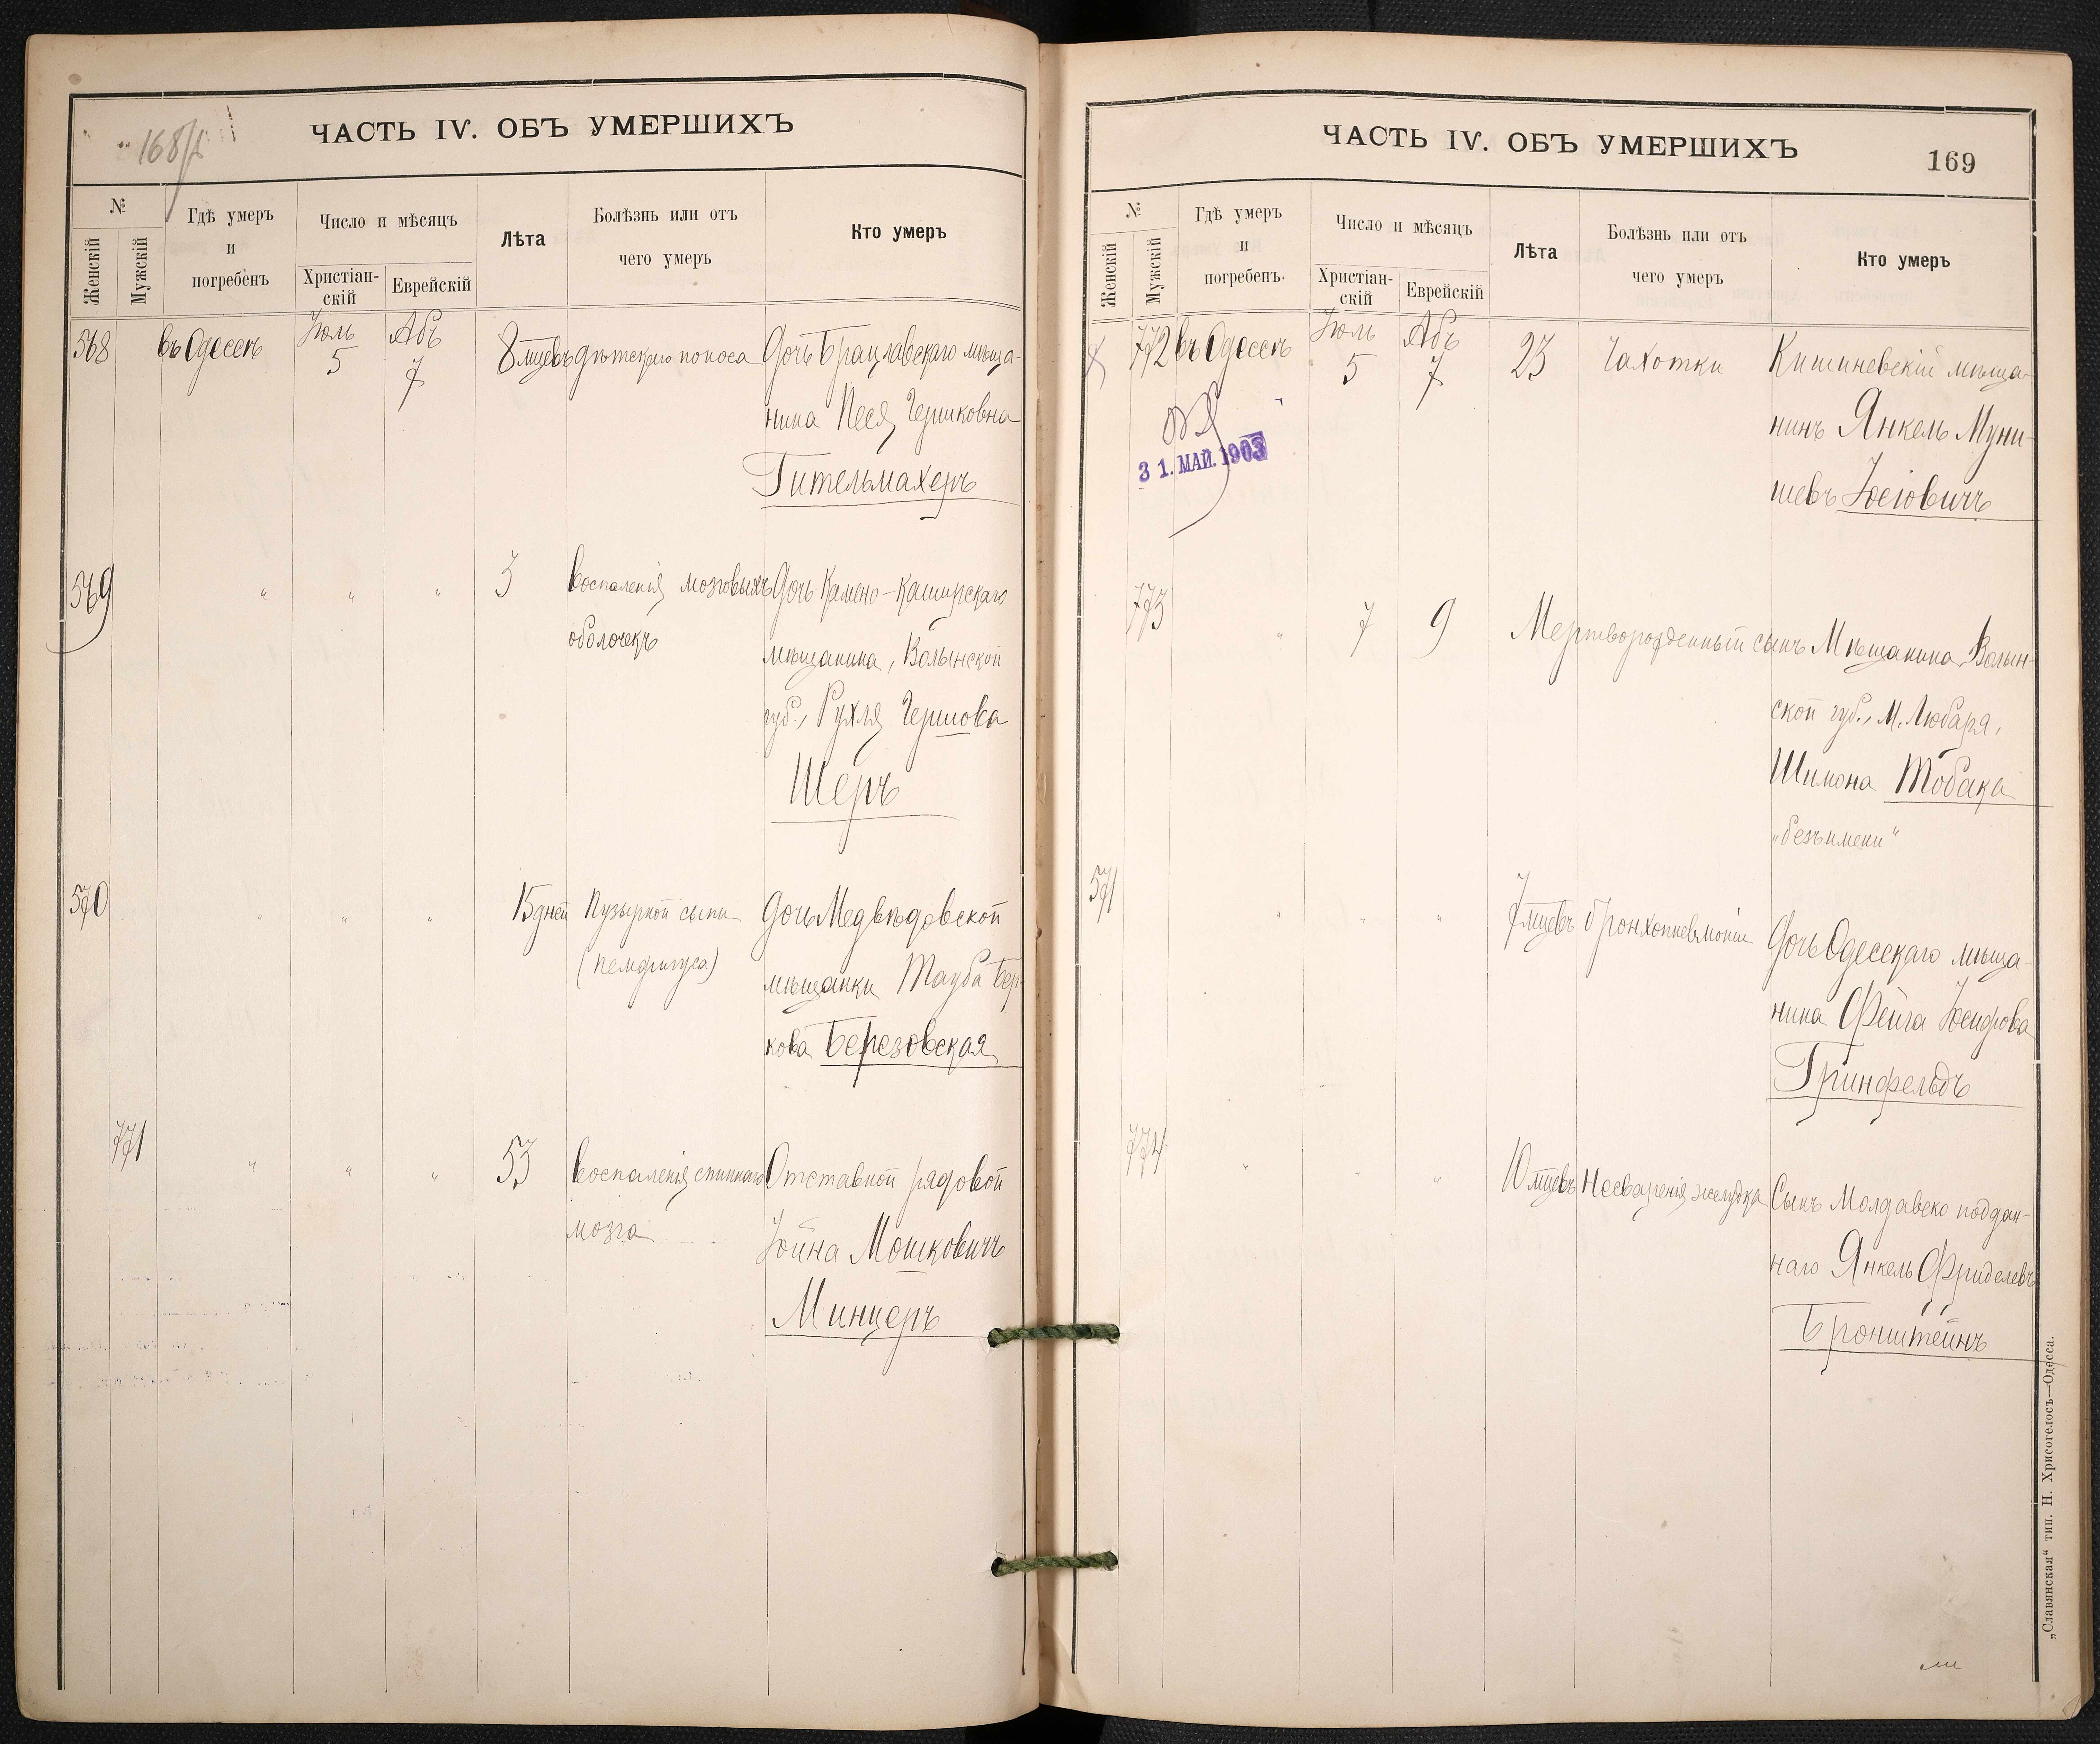 168/б
ЧАСТЬ IV. ОБЪ УМЕРШИХЪ
№
Женскій
Мужскій
Гдѣ умеръ
и
погребенъ
Число и мѣсяцъ
Христіан-
скій
Еврейскій
Лѣта
Болѣзнь или отъ
чего умеръ
Кто умеръ
568 въ Одессѣ Іюль 5 Абъ 7 8 мцевъ дѣтскаго поноса Дочь Брацлавскаго мѣща-
нина Песя Гершковна
Гительмахеръ
569 " " " 3 воспаленія мозговыхъ Дочь Камено-Каширскаго
оболочекъ мѣщанина, Волынской
губ., Рухля Гершова
Шеръ
570 " " " 15 дней Пузырной сыпи Дочь Медвѣдовской
(пемфигуса) мѣщанки Тауба Бер-
кова Березовская
771 " " " 53 воспаленія спиннаго Отставной рядовой
мозга Іойна Мошковичъ
Минцеръ
ЧАСТЬ IV. ОБЪ УМЕРШИХЪ
169
№
Женскій
Мужскій
Гдѣ умеръ
и
погребенъ.
Число и мѣсяцъ
Христіан-
скій
Еврейскій
Лѣта
Болѣзнь или отъ
чего умеръ
Кто умеръ
772 въ Одессѣ Іюль 5 Абъ 7 23 Чахотки Кишиневскій мѣща-
нинъ Янкель Муни-
шевъ Іосіовичъ
31. МАЙ. 1903
773 " 7 9 Мертворожденный сынъ Мѣщанина, Волын-
ской губ., М. Любаря,
Шимона Тобака
"безъ имени"
571 " " " 7 мцевъ бронхопневмоніи Дочь Одесскаго мѣща-
нина Фейга Іосифова
Гринфельдъ
774 " " " 10 мцевъ Несваренія желудка Сынъ Молдавско поддан-
наго Янкель Фриделевъ
Бронштейнъ
„Славянская“ тип. Н. Хрисогелосъ—Одесса.